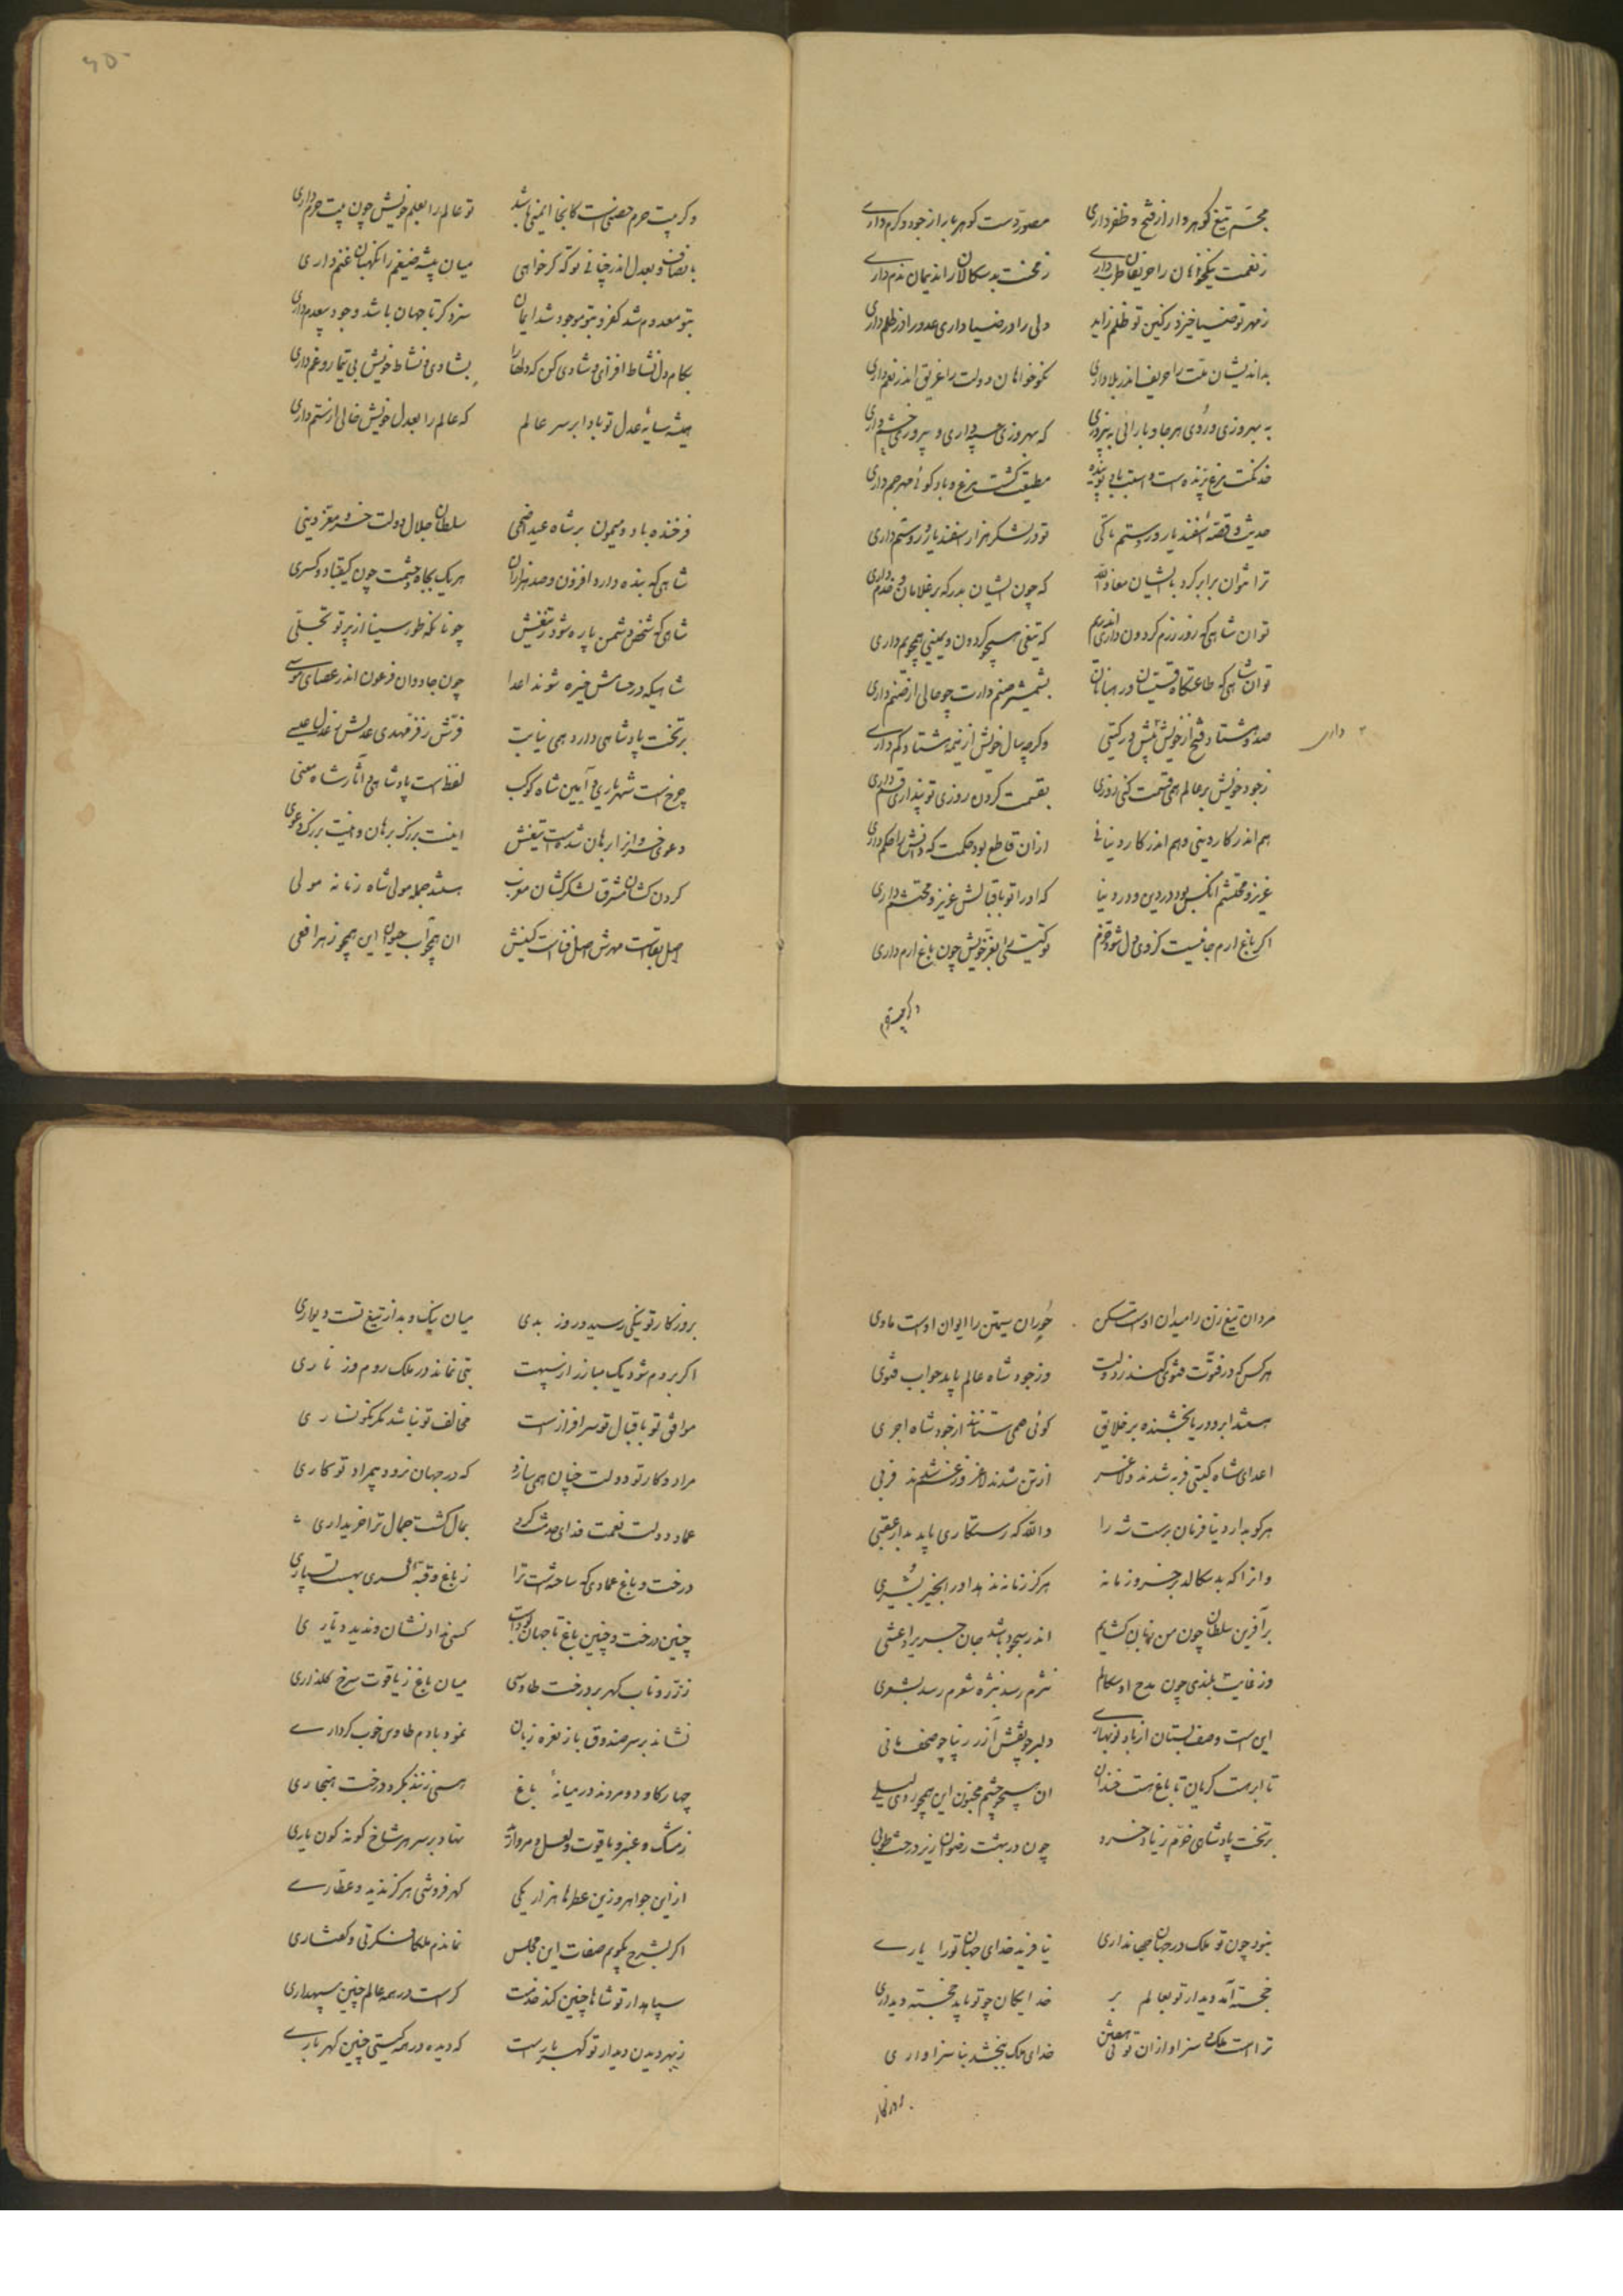 مجسم تیغ گوهردار از فتح و ظفر داری مصور دست گوهربار از جود و کرم داری
ز نعمت نیکخواهان را حریفان طرب داری ز محنت بدسکالان را ندیمان ندم داری
ز مهر تو ضیا خیزد ز کین تو ظلم زاید ولی را در ضیا داری عدو را در ظلم داری
بداندیشان ملت را حریف اندر بلا داری نکوخواهان دولت را غریق اندر نعم داری
به بهروزی و روی هر جا و باز آئی به پیروزی که بهروزی حسم داری و پیروزی خشم داری
خدنگت مرغ پرنده است و اسبت باد پوینده مطیعت گشت مرغ و باد گوئی مهر جم داری
حدیث و قصه اسفندیار و رستم تا کی تو در لشکر هزار اسفندیار و رستم داری
ترا نتوان برابر کرد با ایشان معاذ الله که چون ایشان بدرگه بر غلامان و خدم داری
تو آن شاهی که روز رزم گردون داری اندر هم که تیغی همچو گردون و یمینی همچو یم داری
تو آن شاهی که طاعتگاه قسیسان و رهبانان بشمشیر صنم دارت چو خالی از صنم داری
صد و هشتاد فتح از خویشتن بیش در گیتی وگرچه سال خویش از نیمه هشتاد کم داری
۲ داری
ز جود خویش بر عالم همی قسمت کنی روزی بقسمت کردن روزی تو پنداری قسم داری
هم اندر کار دینی و هم اندر کار دنیائی از آن قاطع بود حکمت که دانش را حکم داری
عزیز و محتشم آنکس بود در دین و در دنیا که او را تو باقبالش عزیز و محتشم داری
اگر باغ ارم جائیست کز وی دل شود خرم تو گیتی را بفر خویش چون باغ ارم داری
وگر بیت حرم
۶۵
وگر بیت حرم حصنی است کانجا ایمنی باشد تو عالم را بعلم خویش چون بیت حرم داری
بانصاف و بعدل اندر چنانی تو که گر خواهی میان بیشه ضیغم را نگهبان غنم داری
بتو معدوم شد کفر و بتو موجود شد ایمان سزد گر تا جهان باشد وجود بیعدم داری
بکام دل نشاط افزای و شادی کن که دلها را بشادی و نشاط خویش بی تیمار و غم داری
همیشه سایه عدل تو بادا بر سر عالم که عالم را بعدل خویش خالی از ستم داری
فرخنده باد و میمون بر شاه عید اضحی سلطان جلال دولت خسرو معز دینی
شاهی که بنده دارد افزون و صد هزاران هر یک بجاه و حشمت چون کیقباد و کسری
شاهی که شخص دشمن پاره شود ز تیغش چونانکه طور سینا از پرتو تجلی
شاهیکه در حسامش خیره شوند اعدا چون جادوان فرعون اندر عصای موسی
بر تخت پادشاهی دارد همی نیابت فرش ز فر مهدی عدلش ز عدل عیسی
چرخ است شهریاری و آیین شاه کوکب لفظ است پادشاهی و آثار شاه معنی
دعوی خسروان را برهان شده است تیغش اینت بزرگ برهان و اینت بزرگ دعوی
گردن کشان مشرق لشکر کشان مغرب هستند جمله مولی شاه زمانه مولی
اصل بقاست مهرش اصل فناست کینش آن همچو آب حیوان این همچو زهر افعی
مردان تیغ زن را میدان اوست مسکن حوران سیمتن را ایوان اوست ماوی
هر کس که در فتوت فتوی کند ز دولت وز جود شاه عالم یابد جواب فتوی
هستند ابر و دریا بخشنده بر خلایق گوئی همی ستانند از جود شاه اجری
اعدای شاه گیتی فربه شدند و لاغر از تن شدند لاغر وز غم شدند فربی
هر کو بدارد دنیا فرمان برست شه را والله که رستگاری یابد بدار عقبی
وانرا که بد سکالد بر خسرو زمانه هرگز زمانه ندهد او را بخیر بشری
بر آفرین سلطان چون من زبان گشایم اندر سجود باشد جان جریر و اعشی
وز غایت بلندی چون مدح او سکالم نثرم رسد بنثره شعرم رسد بشعری
این است وصف بستان از باد نوبهاری دلبر چو نقش آزر زیبا چو صحف مانی
تا ابر هست گریان تا باغ هست خندان آن همچو چشم مجنون این همچو روی لیلی
بر تخت پادشاهی خرم زیاد خسرو چون در بهشت رضوان زیر درخت طوبی
نبود چون تو ملک در جهان جهانداری نیافریند خدای جهان تو را یاری
خجسته آمد دیدار تو بعالم بر خدایگان چو تو باید خجسته دیداری
ترا است ملک و سزاوار آن توئی خدای ملک نبخشد بناسزاواری
روزگار
بروزگار تو نیکی رسید و روز بدی میان نیک و بد از تیغ تست دیواری
اگر بروم شود یک مبارز از سپهت بتی نماند در ملک روم و زناری
موافق تو باقبال تو سرافراز است مخالف تو نباشد مگر نگونساری
مراد و کار تو دولت چنان همی سازد که در جهان نرود بیمراد تو کاری
عماد دولت نعمت فدای مدحت کرد بمال گشت جمال ترا خریداری
درخت و باغ عمادی که ساخته است ترا ز باغ و قبه کسری بهست بسیاری
چنین درخت و چنین باغ تا جهان بودست کسی نداد نشان و ندید دیاری
ز زر و ناب گهر بر درخت طاوسی میان باغ ز یاقوت سرخ گلناری
نشاند بر سر صندوق باز نغمه زنان نمود با دم طاوس خوب کرداری
چهار گاو دو مردند در میانه باغ همی زنند بگرد درخت هنجاری
ز مشک و عنبر و یاقوت و لعل و مروارید نهاد بر سر هر شاخ گونه گون باری
از این جواهر و زین عطرها هزار یکی گهرفروشی هرگز ندید و عطاری
اگر بشرح بگویم صفات این مجلس نماندم ملکا فکرتی و گفتاری
سپاهدار تو شاها چنین کند خدمت کراست در همه عالم چنین سپهداری
ز بهر دیدن دیدار تو گهر بارست که دیده در همه گیتی چنین گهرباری